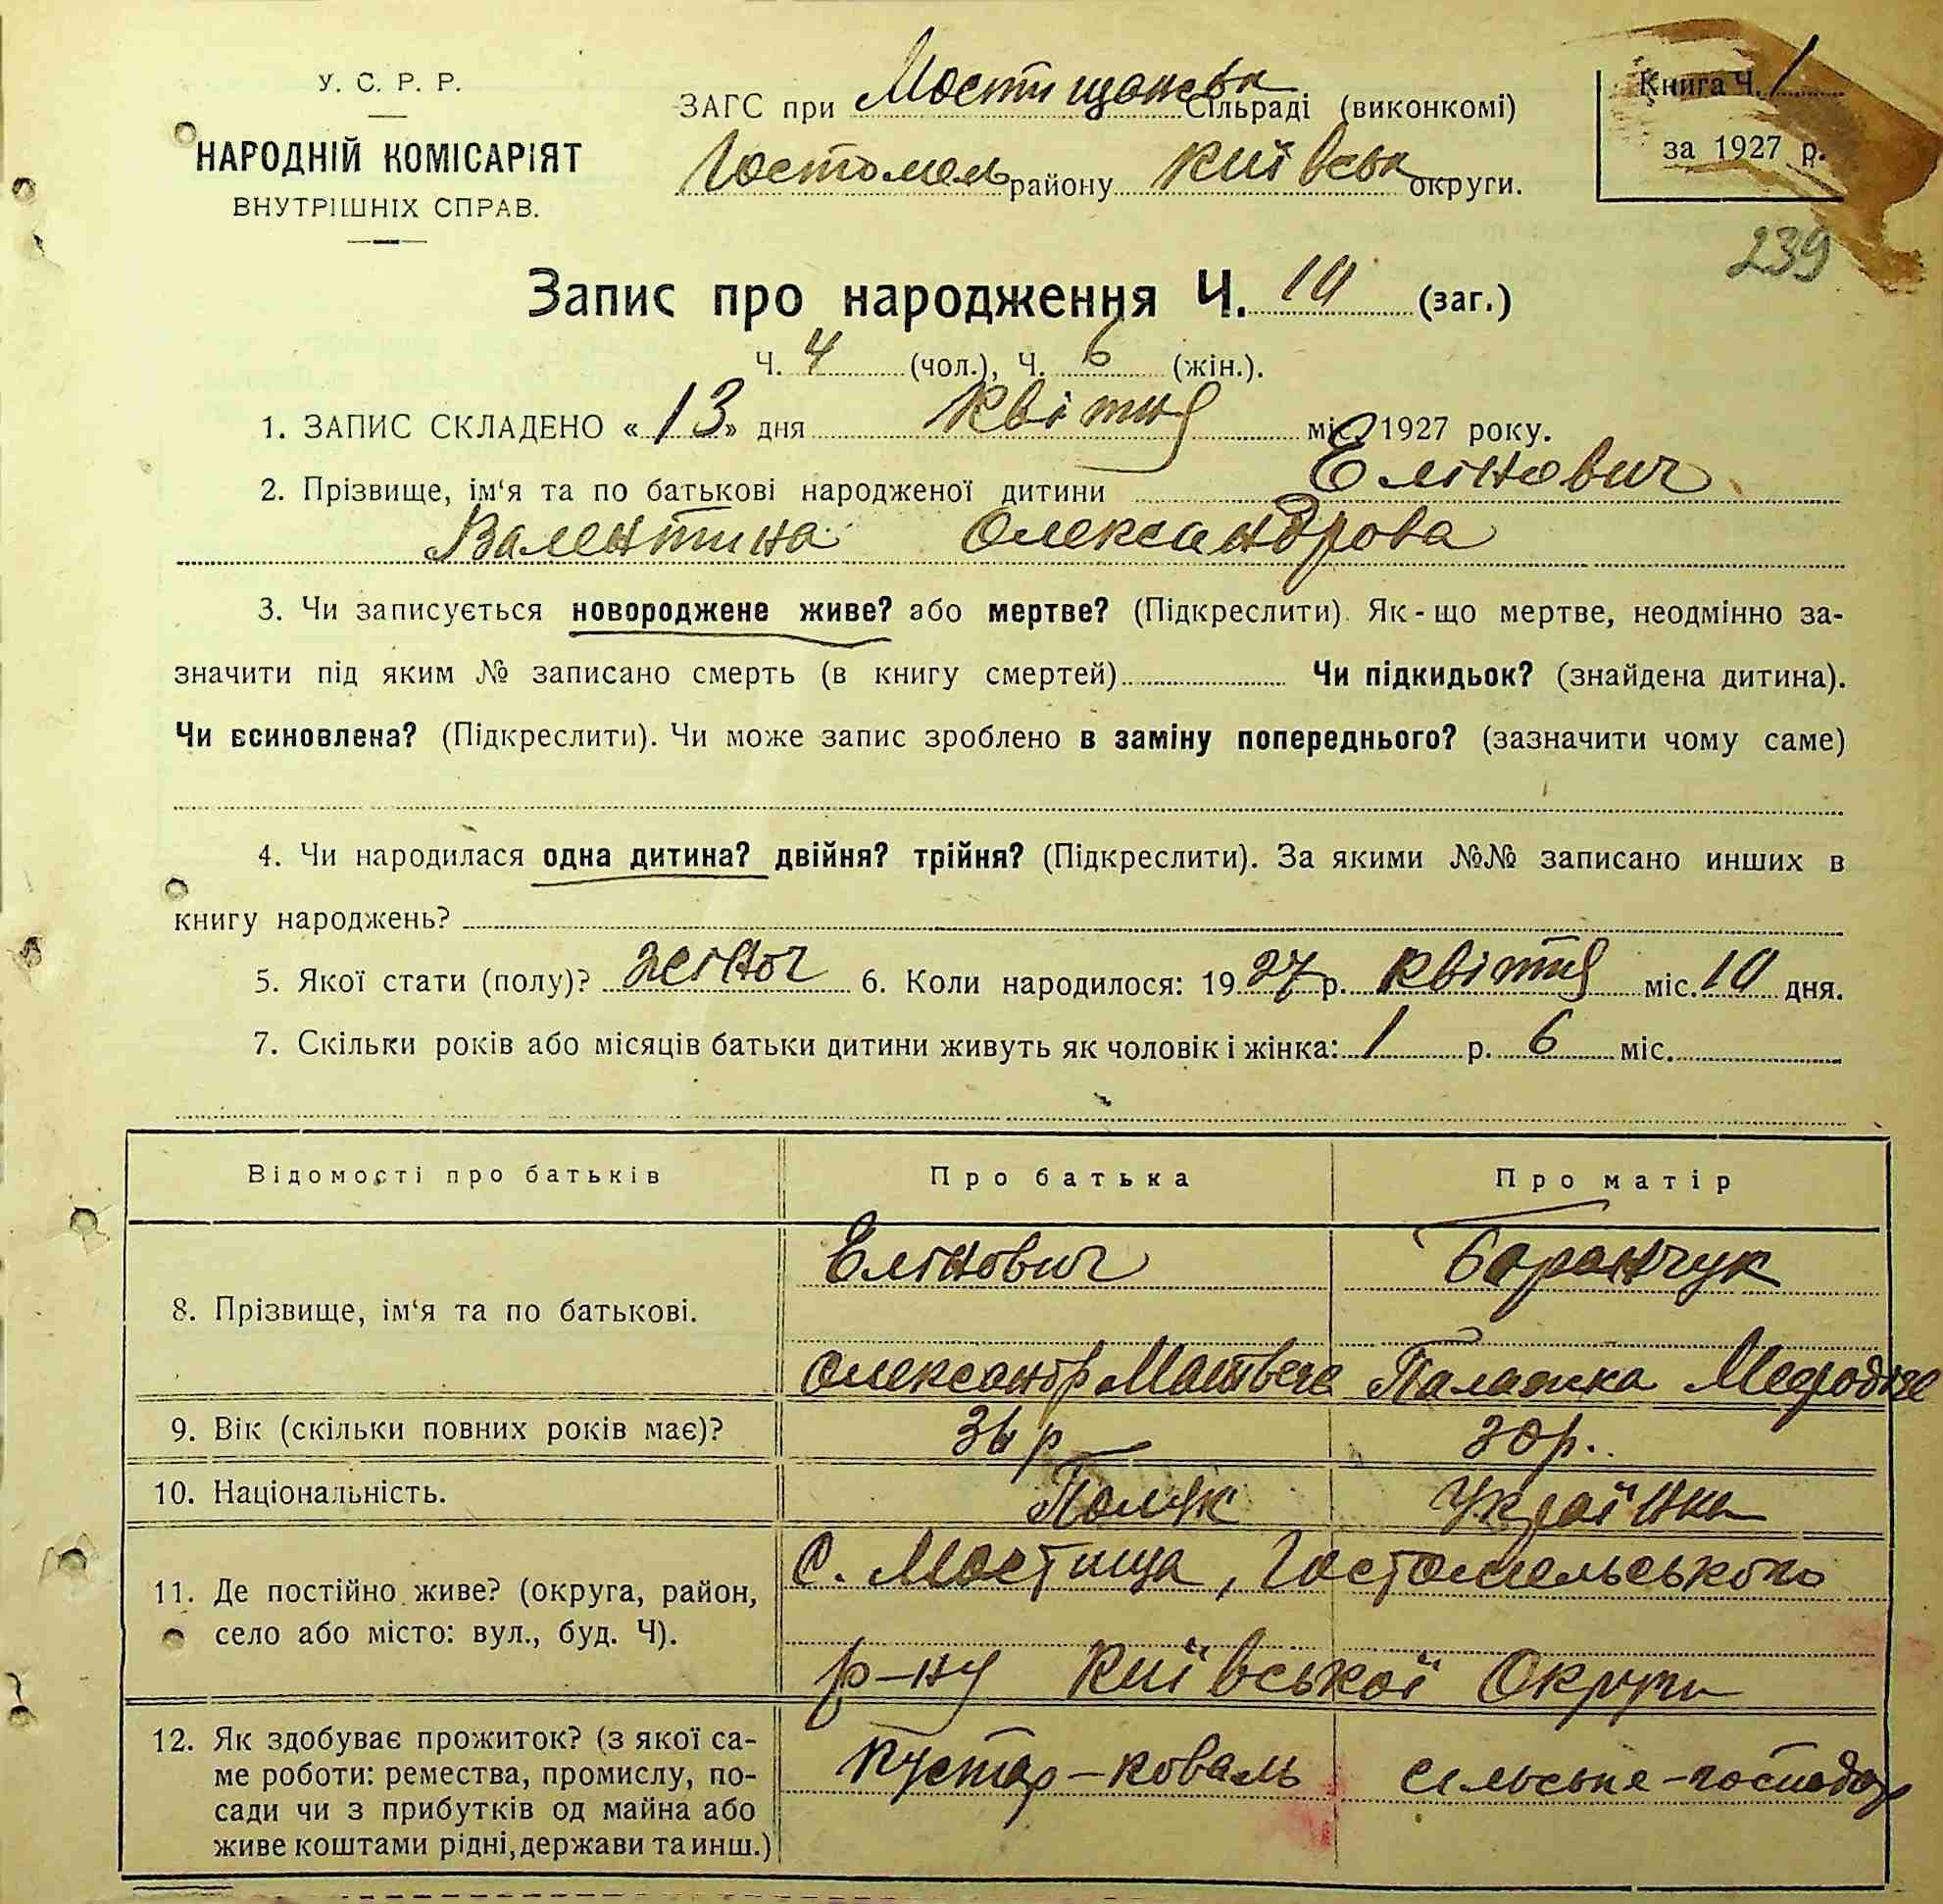 У. С. Р. Р.
НАРОДНІЙ КОМІСАРІЯТ
ВНУТРІШНІХ СПРАВ.
ЗАГС при Мостищанськ Сільраді (виконкомі)
Гостомель району Київськ округи.
Книга Ч. 1
за 1927 р.
239
Запис про народження Ч. 10 (заг.)
Ч. 4 (чол.), Ч. 6 (жін.).
1. ЗАПИС СКЛАДЕНО «13» дня квітня міс. 1927 року.
2. Прізвище, ім'я та по батькові народженої дитини Елінович
Валентина Олександрова
3. Чи записується новороджене живе? або мертве? (Підкреслити). Як-що мертве, неодмінно за-
значити під яким № записано смерть (в книгу смертей) Чи підкидьок? (знайдена дитина).
Чи всиновлена? (Підкреслити). Чи може запис зроблено в заміну попереднього? (зазначити чому саме)
4. Чи народилася одна дитина? двійня? трійня? (Підкреслити). За якими №№ записано инших в
книгу народжень?
5. Якої стати (полу)? жіноч 6. Коли народилося: 1927 р. квітня міс. 10 дня.
7. Скільки років або місяців батьки дитини живуть як чоловік і жінка: 1 р. 6 міс.
Відомості про батьків Про батька Про матір
8. Прізвище, ім'я та по батькові.
Елінович Баранчук
Олександр Матвеев Палажка Мефодіє
9. Вік (скільки повних років має)? р 30р.
10. Національність. Поляк Українка
11. Де постійно живе? (округа, район,
село або місто: вул., буд. Ч).
С. Мостища, Гостомельського
р-ну Київської Округи
12. Як здобуває прожиток? (з якої са-
ме роботи: ремества, промислу, по-
сади чи з прибутків од майна або
живе коштами рідні, держави та инш.)
Кустар-коваль сільське-господар